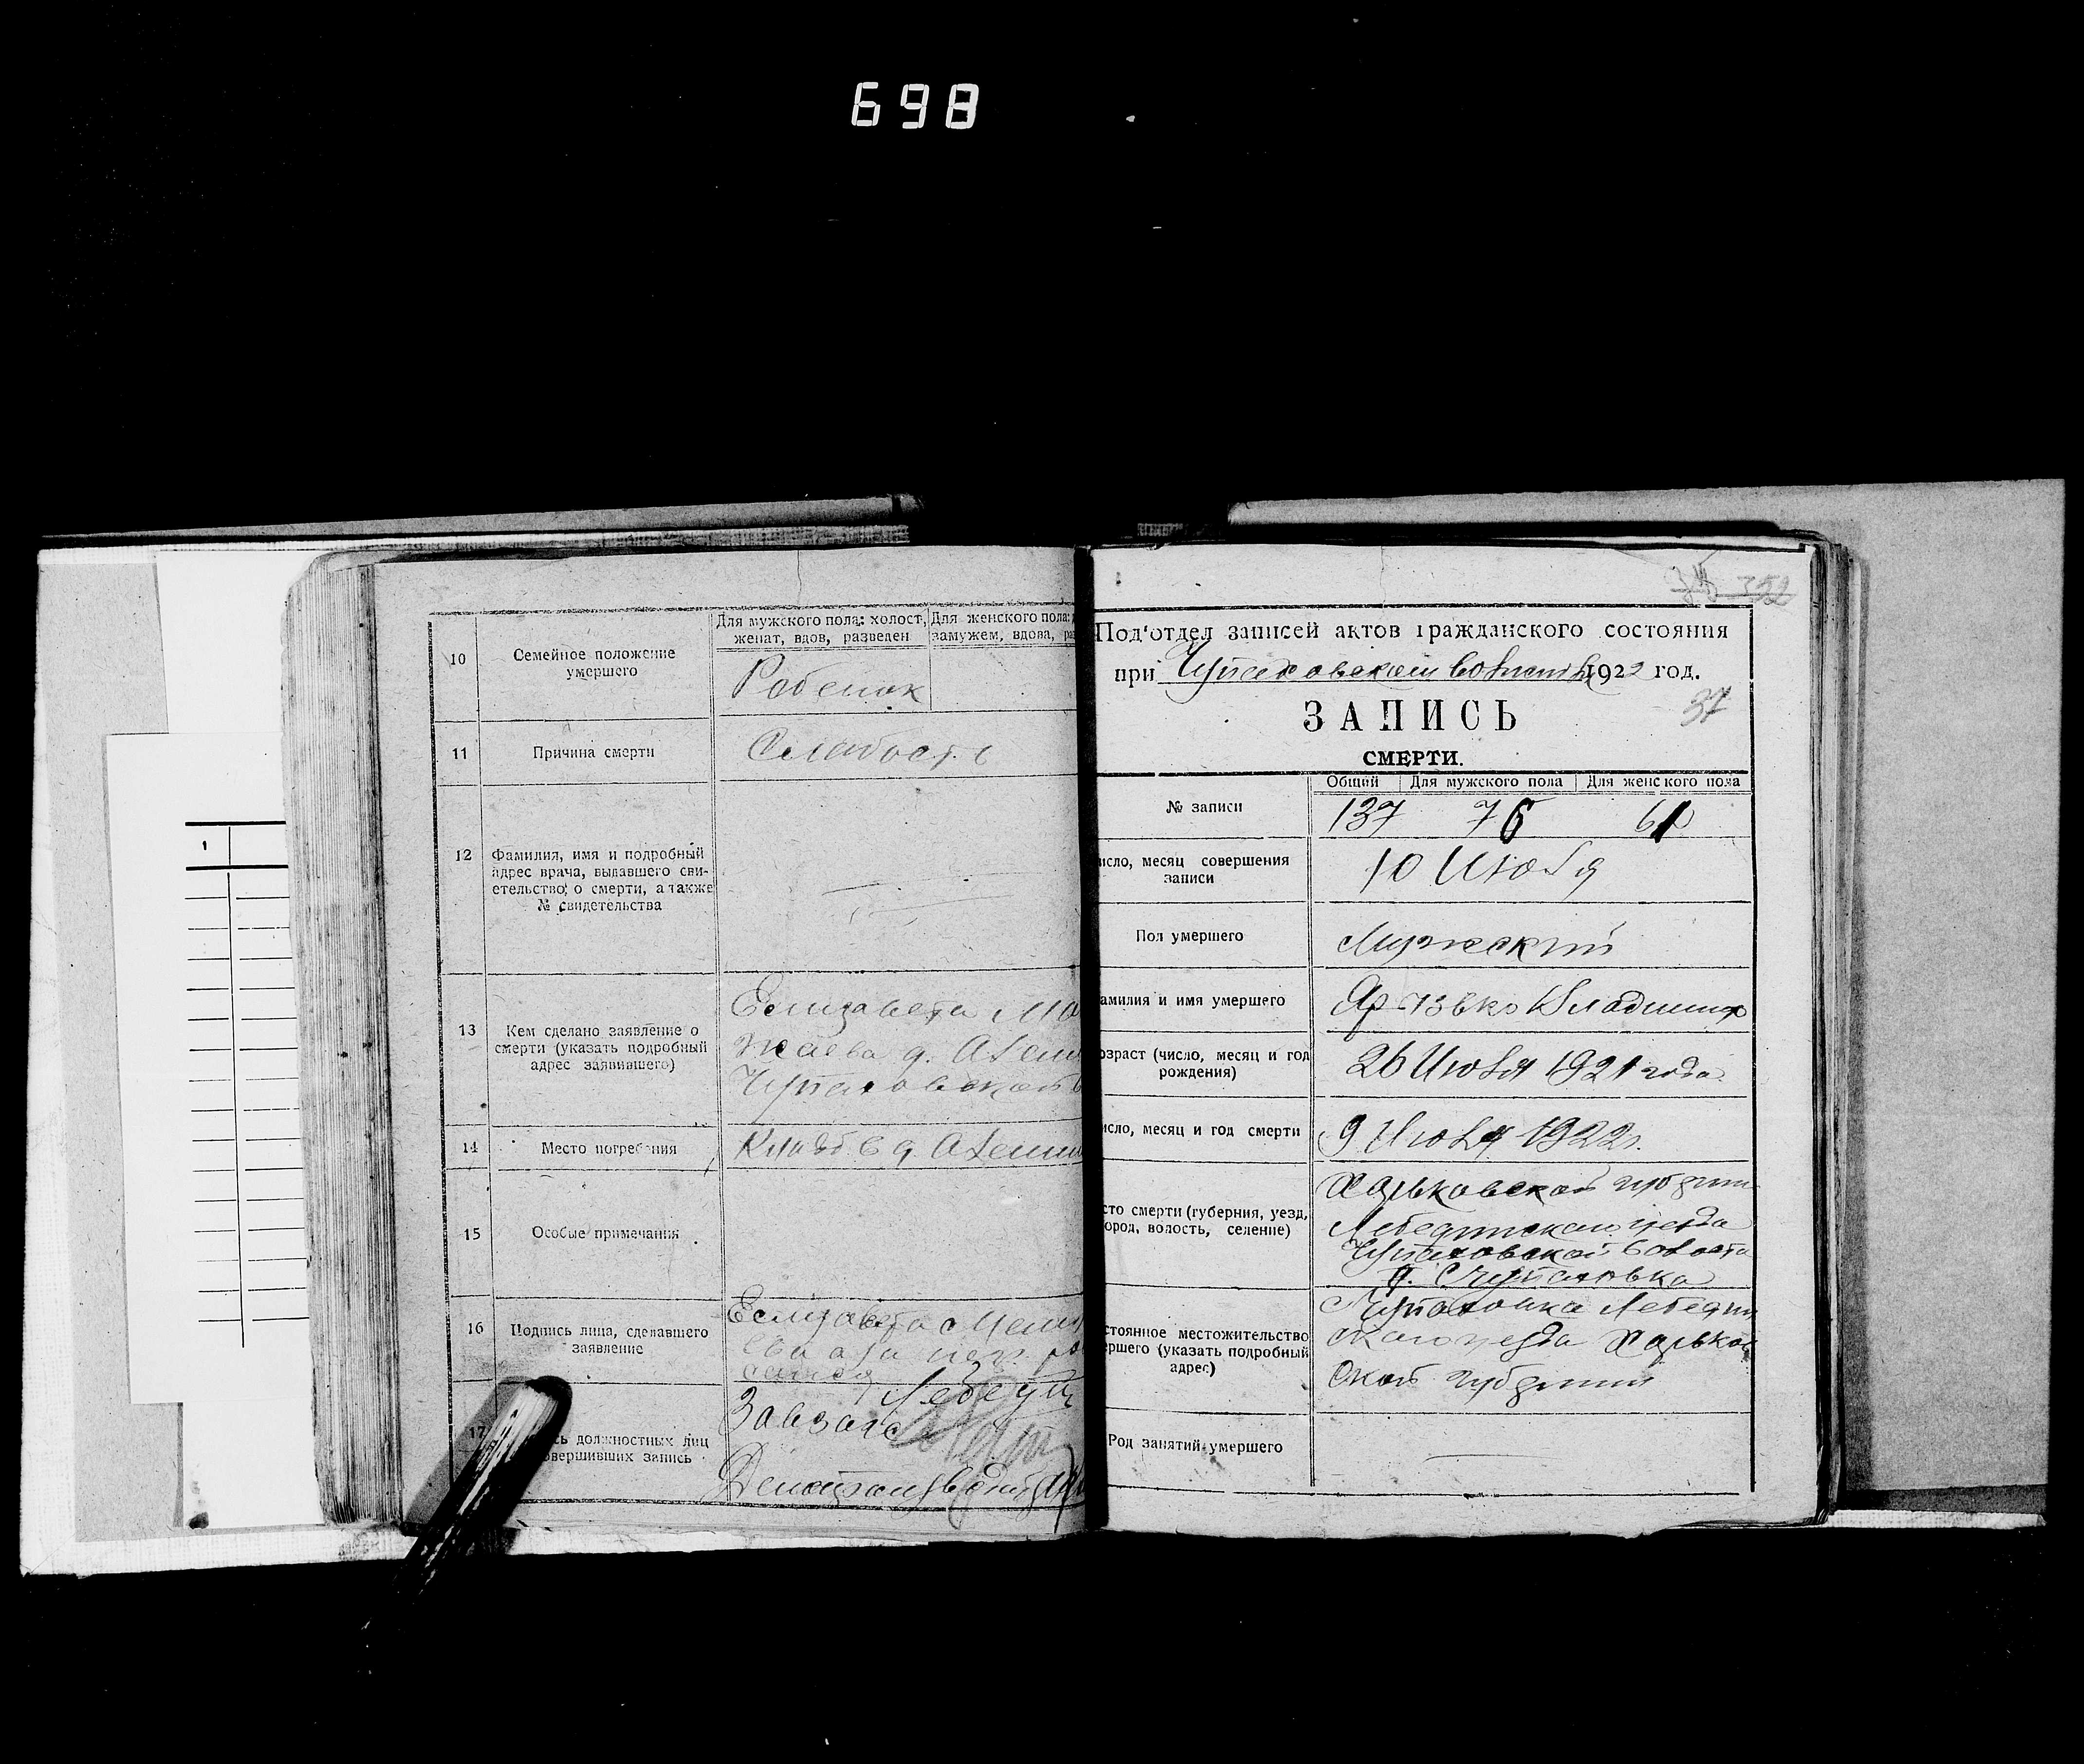 698
10
Семейное положение
умершего
Для мужского пола: холост,
женат, вдов, разведен
Для женского пола:
замужем, вдова, ра
Ребенок
11
Причина смерти
Слабость
12
Фамилия, имя и подробный
адрес врача, выдавшего сви-
етельство о смерти, а также
№ свидетельства
13
Кем сделано заявление о
смерти (указать подробный
адрес заявившего)
Елизавета
Чупаховской в
14
Место погребения
Кладб в д
15
Особые примечания
16
Подпись лица, сделавшего
заявление
Елизавета
17
сь должностных лиц
овершивших запись
Завзагс
1
352
Под'отдел записей актов гражданского состояния
при Чупаховской волости 1922 год.
37
ЗАПИСЬ
СМЕРТИ.
№ записи
Общий
Для мужского пола
Для женского пола
137 76 61
исло, месяц совершения
записи
10 Июля
Пол умершего
Мужеский
амилия и имя умершего
Владимир
озраст (число, месяц и год
рождения)
26 Июля 1921 года
исло, месяц и год смерти
9 Июля 1922 г.
сто смерти (губерния, уезд,
ород, волость, селение)
Харьковской губернии
Лебединского уезда
Чупаховской волости
с. Чупаховка
стоянное местожительство
ршего (указать подробный
адрес)
с Чупаховка Лебедин
ского уезда Харьков
ской губернии
Род занятий умершего